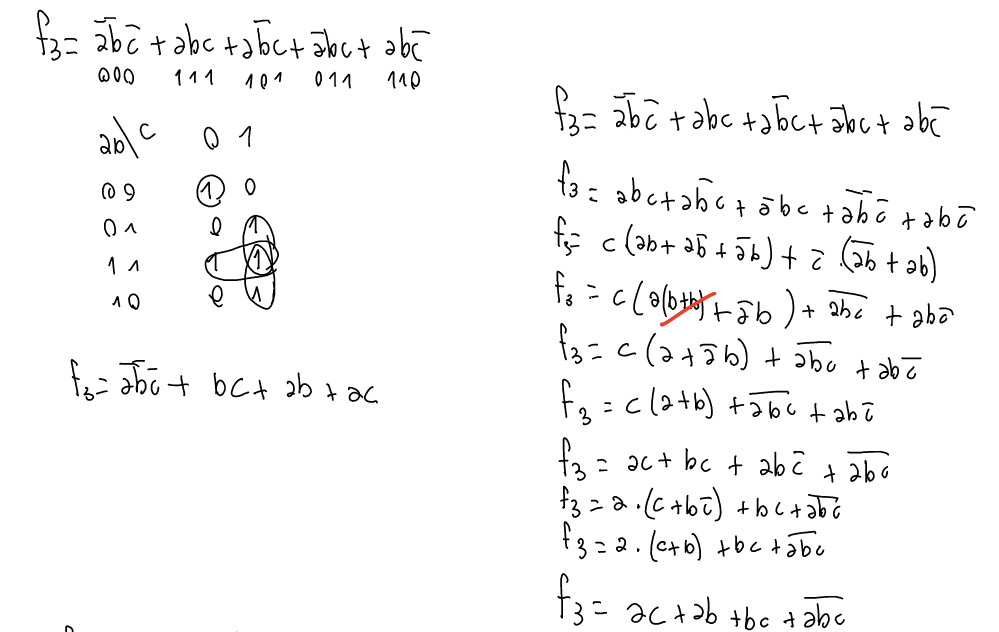 f₃ = a̅b̅c̅ + abc + ab̅c + a̅bc + abc̅
000 111 101 011 110
ab\c 0 1
00 1 0
01 0 1
11 1 1
10 0 1
f₃ = a̅b̅c̅ + bc + ab + ac
f₃ = a̅b̅c̅ + abc + ab̅c + a̅bc + abc̅
f₃ = abc + ab̅c + a̅bc + a̅b̅c̅ + abc̅
f₃ = c(ab + ab̅ + a̅b) + c̅·(a̅b̅ + ab)
f₃ = c(a(b+b) + a̅b) + a̅b̅c̅ + abc̅
f₃ = c(a + a̅b) + a̅b̅c̅ + abc̅
f₃ = c(a+b) + a̅b̅c̅ + abc̅
f₃ = ac + bc + abc̅ + a̅b̅c̅
f₃ = a·(c + bc̅) + bc + a̅b̅c̅
f₃ = a·(c+b) + bc + a̅b̅c̅
f₃ = ac + ab + bc + a̅b̅c̅